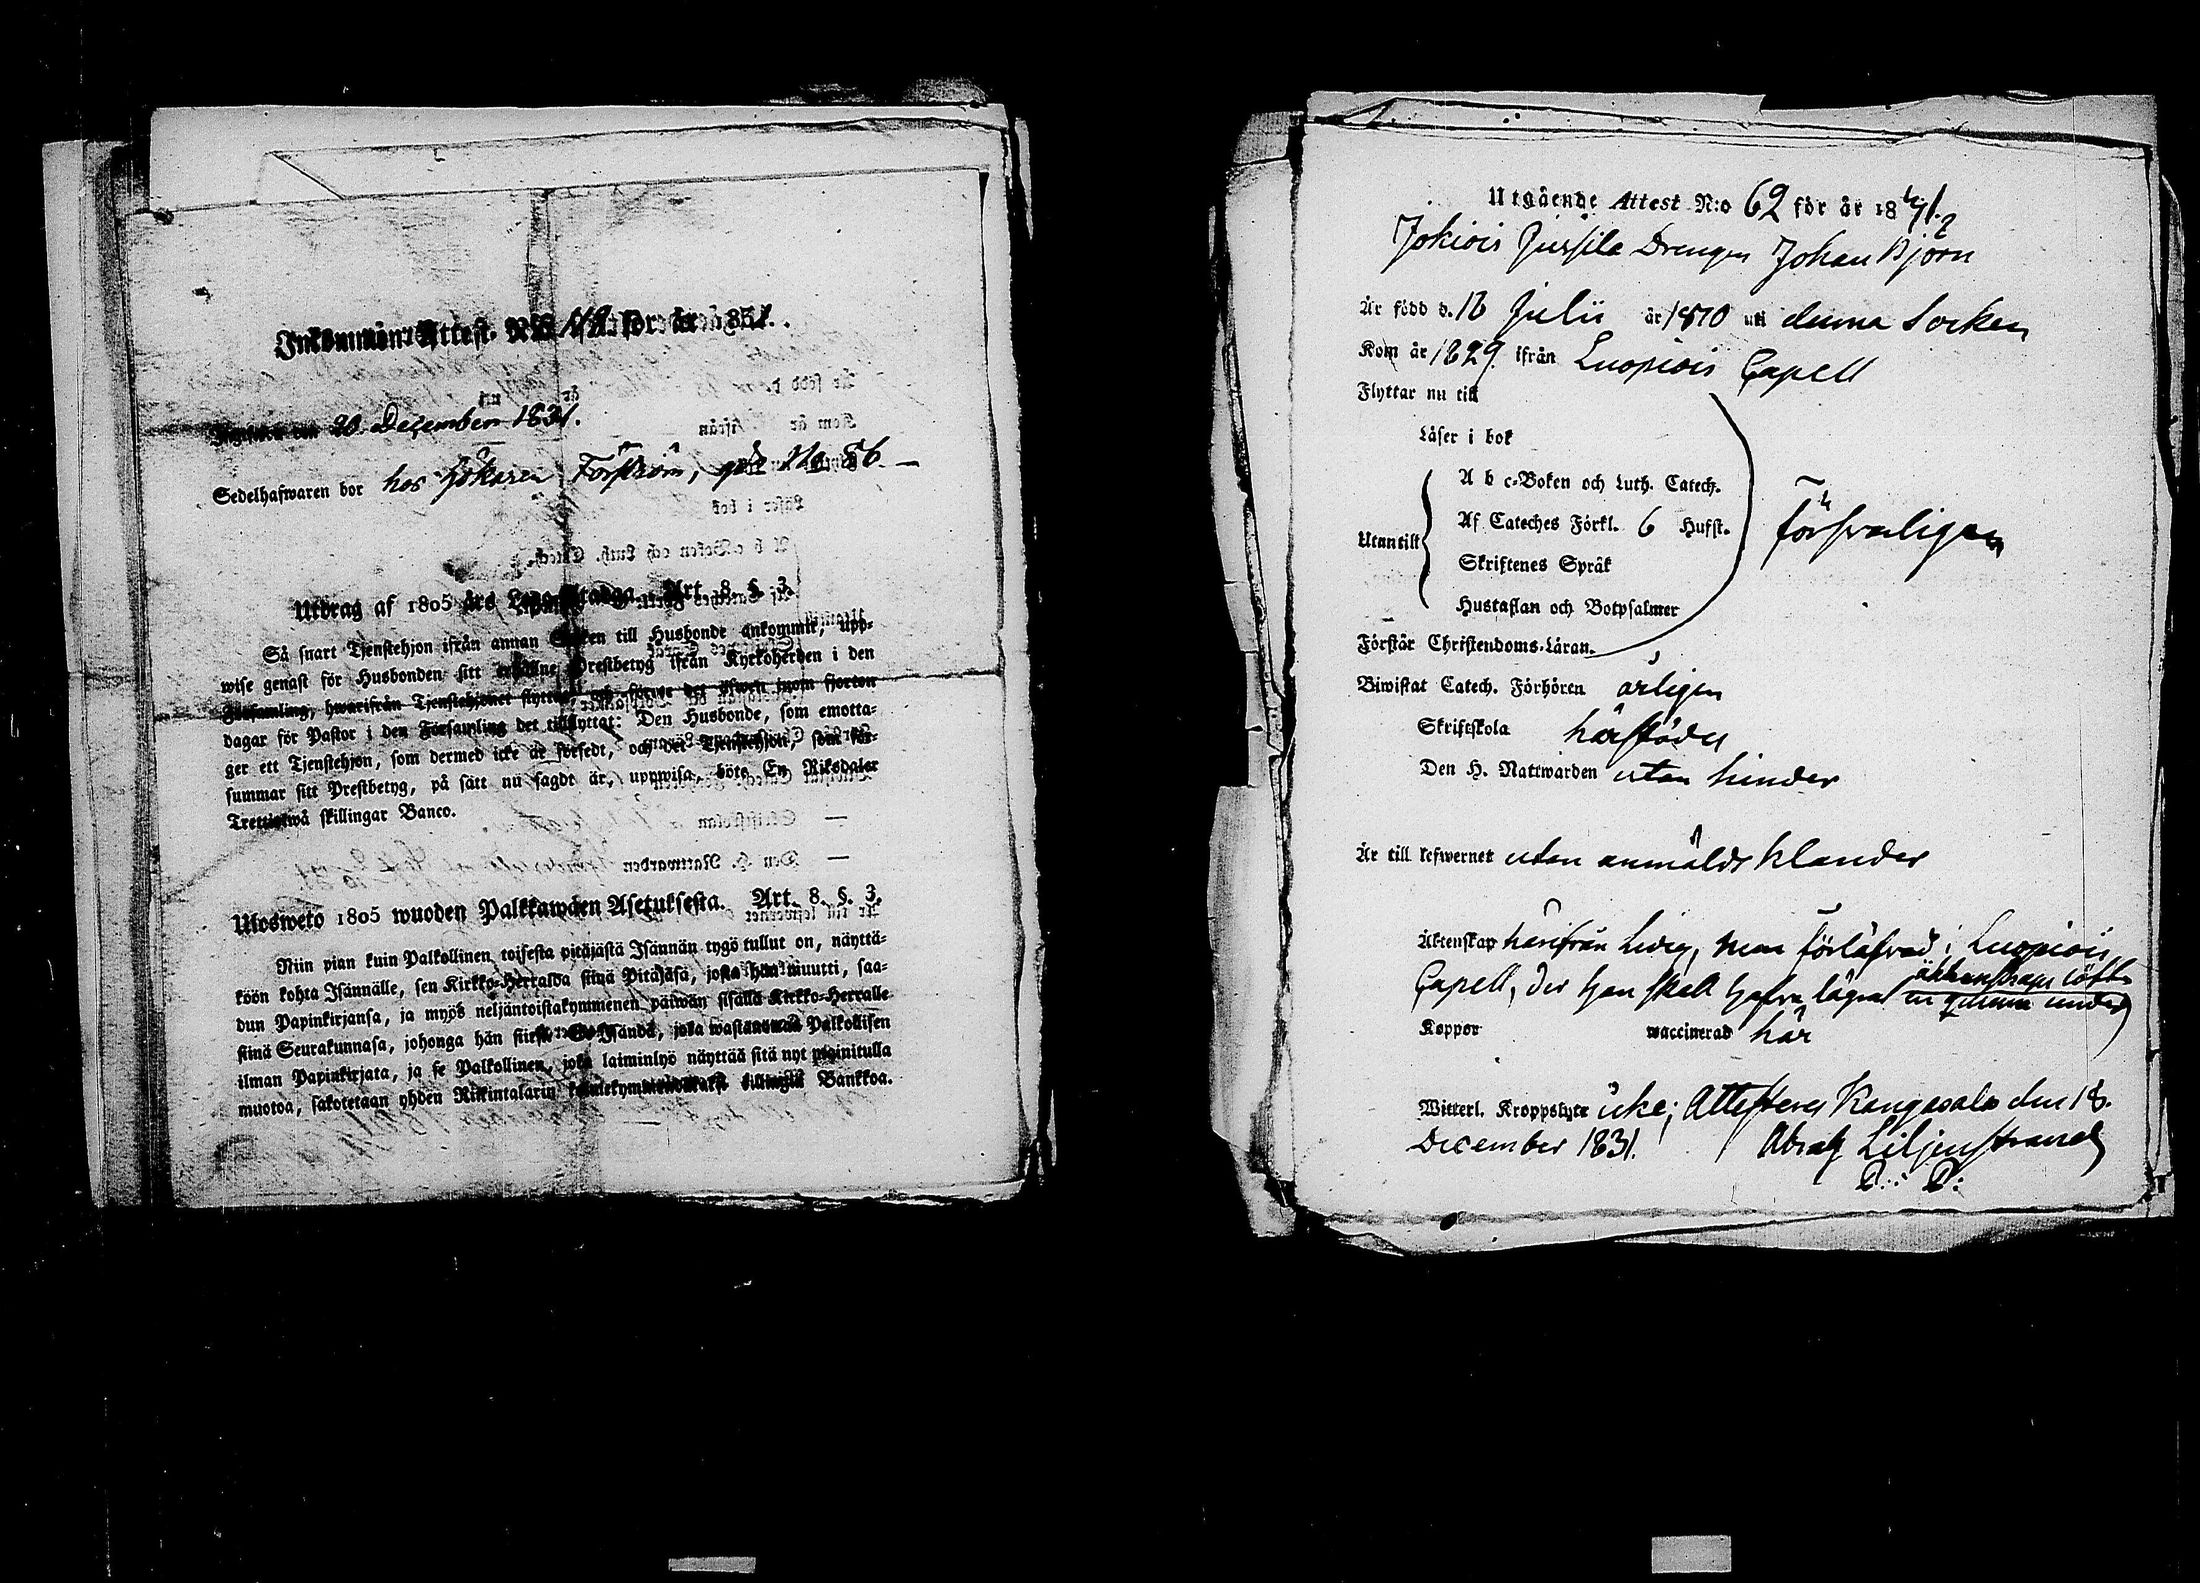 Inkommen: Attest. N:o för år 1831.
den 20 December 1831.
Sedelhafwaren bor hos Åkaren Forsström, går No 86.
Utdrag af 1805 års Lego-Stadga. Art. 8. §. 3.
Så snart Tjenstehjon ifrån annan Socken till Husbonde ankommit, upp-
wise genast för Husbonden sitt Prestbetyg ifrån Kyrkoherden i den
Församling, hwarifrån Tjenstehjonet flyttat, och förete det äfwen inom fjorton
dagar för Pastor i den Församling det tillflyttat: Den Husbonde, som emotta-
ger ett Tjenstehjon, som dermed icke är försedt, och det Tjenstehjon, som för-
summar sitt Prestbetyg, på sätt nu sagdt är, uppwisa, böte En Riksdaler
Trettiotwå skillingar Banco.
Ulosweto 1805 wuoden Palkkawäen Asetuksesta. Art. 8. §. 3.
Niin pian kuin Palkollinen toisesta pitäjästä Isännän tygö tullut on, näyttä-
köön kohta Isännälle, sen Kirkko-Herralda siinä Pitäjäsä, josta hän muutti, saa-
dun Papinkirjansa, ja myös neljäntoistakymmenen päiwän sisällä Kirkko-Herralle
siinä Seurakunnasa, johonga hän siirsi: Se Isändä, joka wastanottaa Palkollisen
ilman Papinkirjata, ja se Palkollinen, joka laiminlyö näyttää sitä nyt mainitulla
muotoa, sakotetaan yhden Riikintalarin Bankkoa.
Utgående Attest N:o 62 för år 1831.
Jokiois Jussila Drengen Johan Björn
Är född d. 16 Julii år 1810 uti denna Socken
Kom år 1829 ifrån Luopiois Capell
Flyttar nu till
Läser i bok
A b c-Boken och Luth. Catech.
Af Cateches Förkl. 6 Hufst. försvarligen
Utantill
Skriftenes Språk
Hustaflan och Botpsalmer
Förstår Christendoms-Läran.
Biwistat Catech. Förhören årligen
Skriftskola härstädes
Den H. Nattwarden utan hinder
Är till lefwernet utan anmäldt klander
Äktenskap härifrån ledig, men förlåfvad i Luopiois
äktenskaps löfte
Capell, der han skall hafva lägrat en qvinna under
Koppor waccinerad här
Witterl. Kroppslyte icke; Attesteras Kangasala den 18.
December 1831. Abrah Liljenstrand